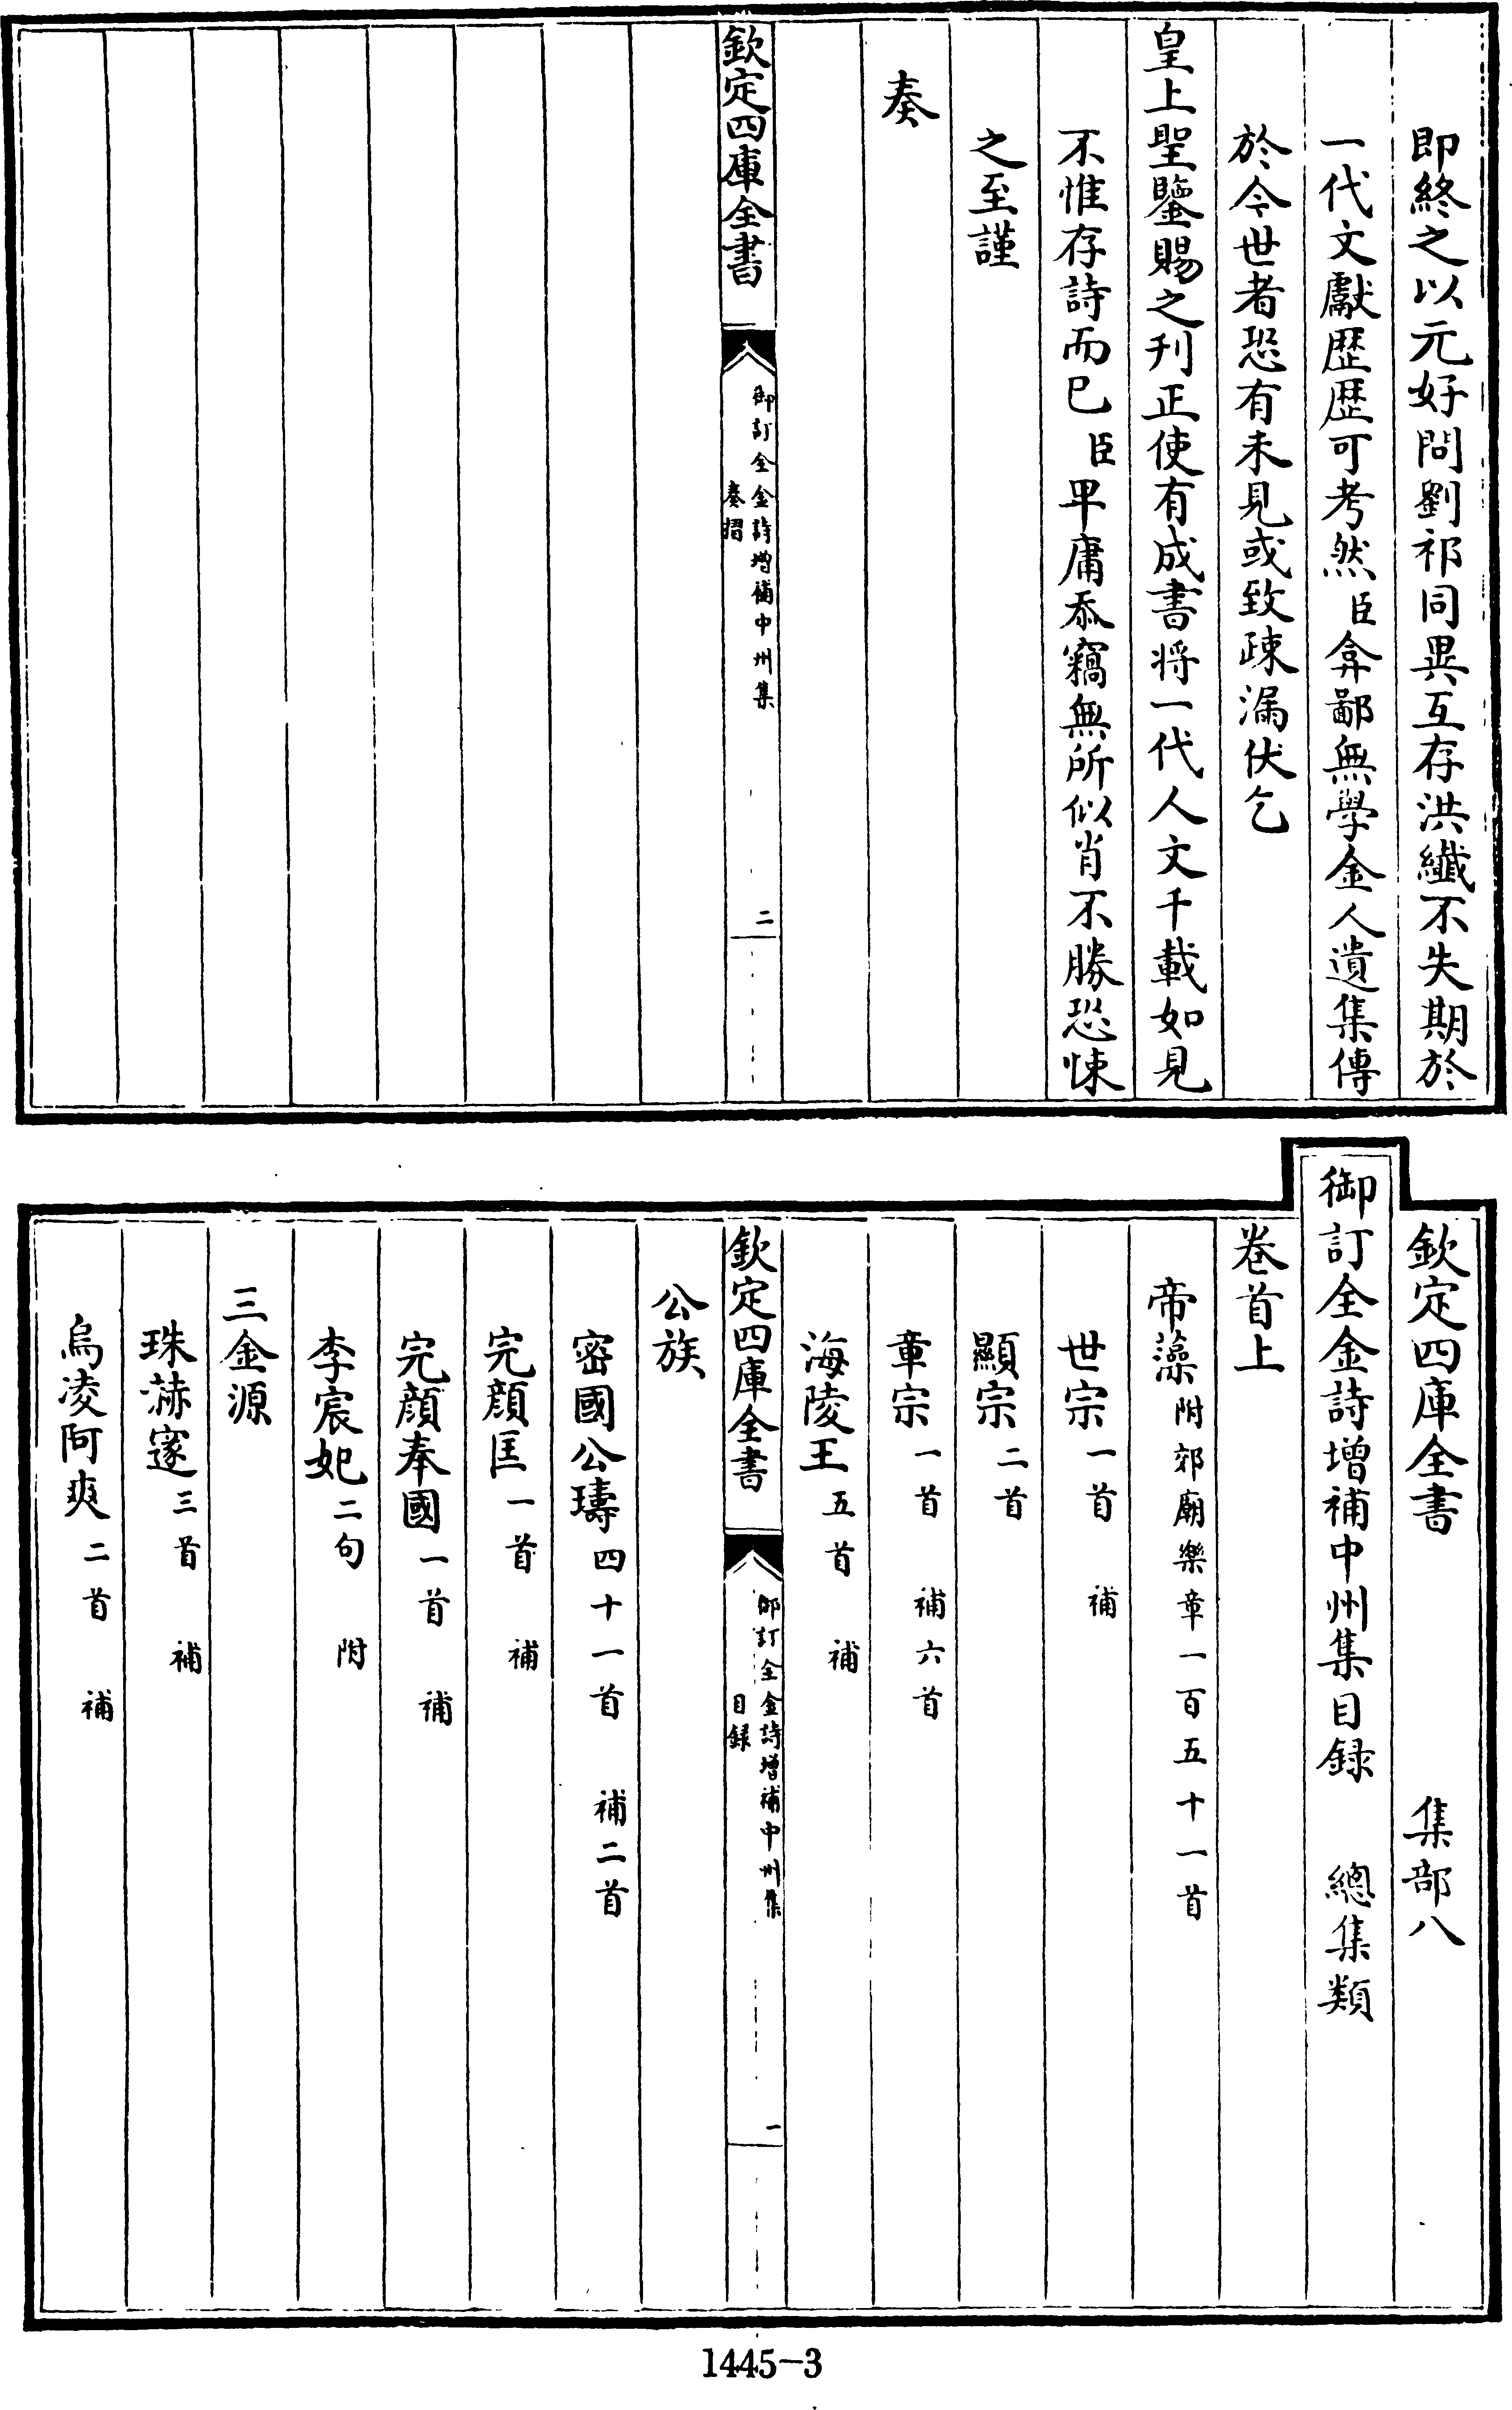 即終之以元好問劉祁同異互存洪纎不失期於
一代文獻歴歴可考然臣弇鄙無學金人遺集傳
於今世者恐有未見或致疎漏伏乞
皇上聖鑒賜之刋正使有成書將一代人文千載如見
不惟存詩而已臣早庸忝竊無所似肖不勝恐悚
之至謹
奏
欽定四庫全書
御訂全金詩增補中州集
奏摺
二
欽定四庫全書 集部八
御訂全金詩增補中州集目録 總集類
卷首上
帝藻附郊廟樂章一百五十一首
世宗一首 補
顯宗二首
章宗一首 補六首
海陵王五首 補
欽定四庫全書
御訂全金詩增補中州集
目録
一
公族
密國公璹四十一首 補二首
完顔匡一首 補
完顔奉國一首 補
李宸妃二句 附
三金源
珠赫邃三首 補
烏凌阿爽二首 補
1445-3